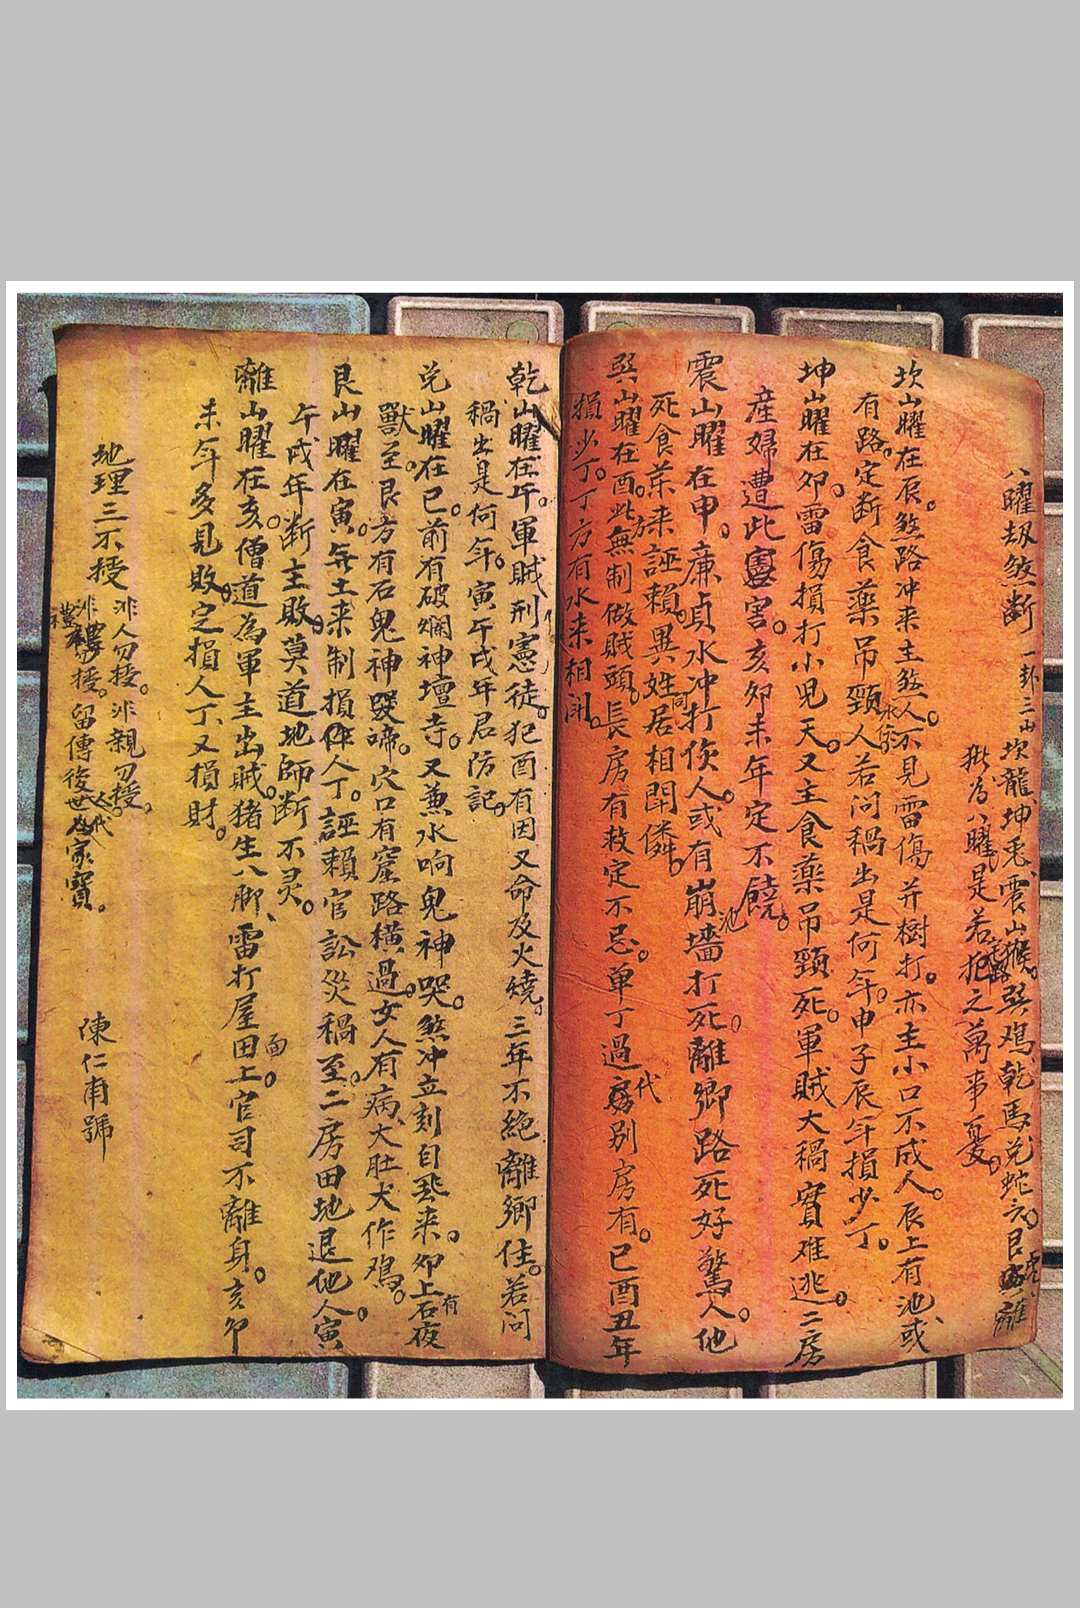 八曜刼煞斷 一卦三山
坎龍坤兎震山猴。巽鳮乾馬兌蛇六。艮虎離
猪為八曜是若犯之萬事憂。
坎山曜在辰。煞路冲来主煞人。不見雷傷并樹打。亦主小口不成人。辰上有池或
有路。定断食藥吊頸人若问禍出是何年。申子辰年損少丁。
坤山曜在卯。雷傷損打小児夭。又主食藥吊頸死。軍賊大禍實难逃。二房
産婦遭此害。亥卯未年定不饒。
震山曜在申。亷貞水冲打傷人。或有崩墻打死。離鄉路死好驚人。他
死食藥来誣賴。異姓同居相閗
巽山曜在酉。此方無制做賊頭。長房有救定不忌。单丁過代别房有。巳酉丑年
損少丁。丁方有水来相
乾山曜在午。軍賊刑憲徒。犯酉有因又命及火燒。三年不絶離鄉住。若问
禍出是何年。寅午戌年君防記。
兌山曜在巳。前有破爛神壇寺。又兼水响鬼神哭。煞冲立刻自来。卯上有石夜
獸至。艮方有石鬼神啼。穴口有窟路横過。女人有病大肚犬作鳮。
艮山曜在寅。年土来制損人丁。誣賴官訟災禍至。二房田地退他人。寅
午戌年断主敗。莫道地師断不灵。
離山曜在亥。僧道為軍主出賊。猪生八脚、雷打屋面。田上官司不離身。亥卯
未年多見敗。定損人丁又損財。
地理三不授
非人勿授。非親勿授。
非禮勿授。留傳後世代為家寳。
陳仁甫號